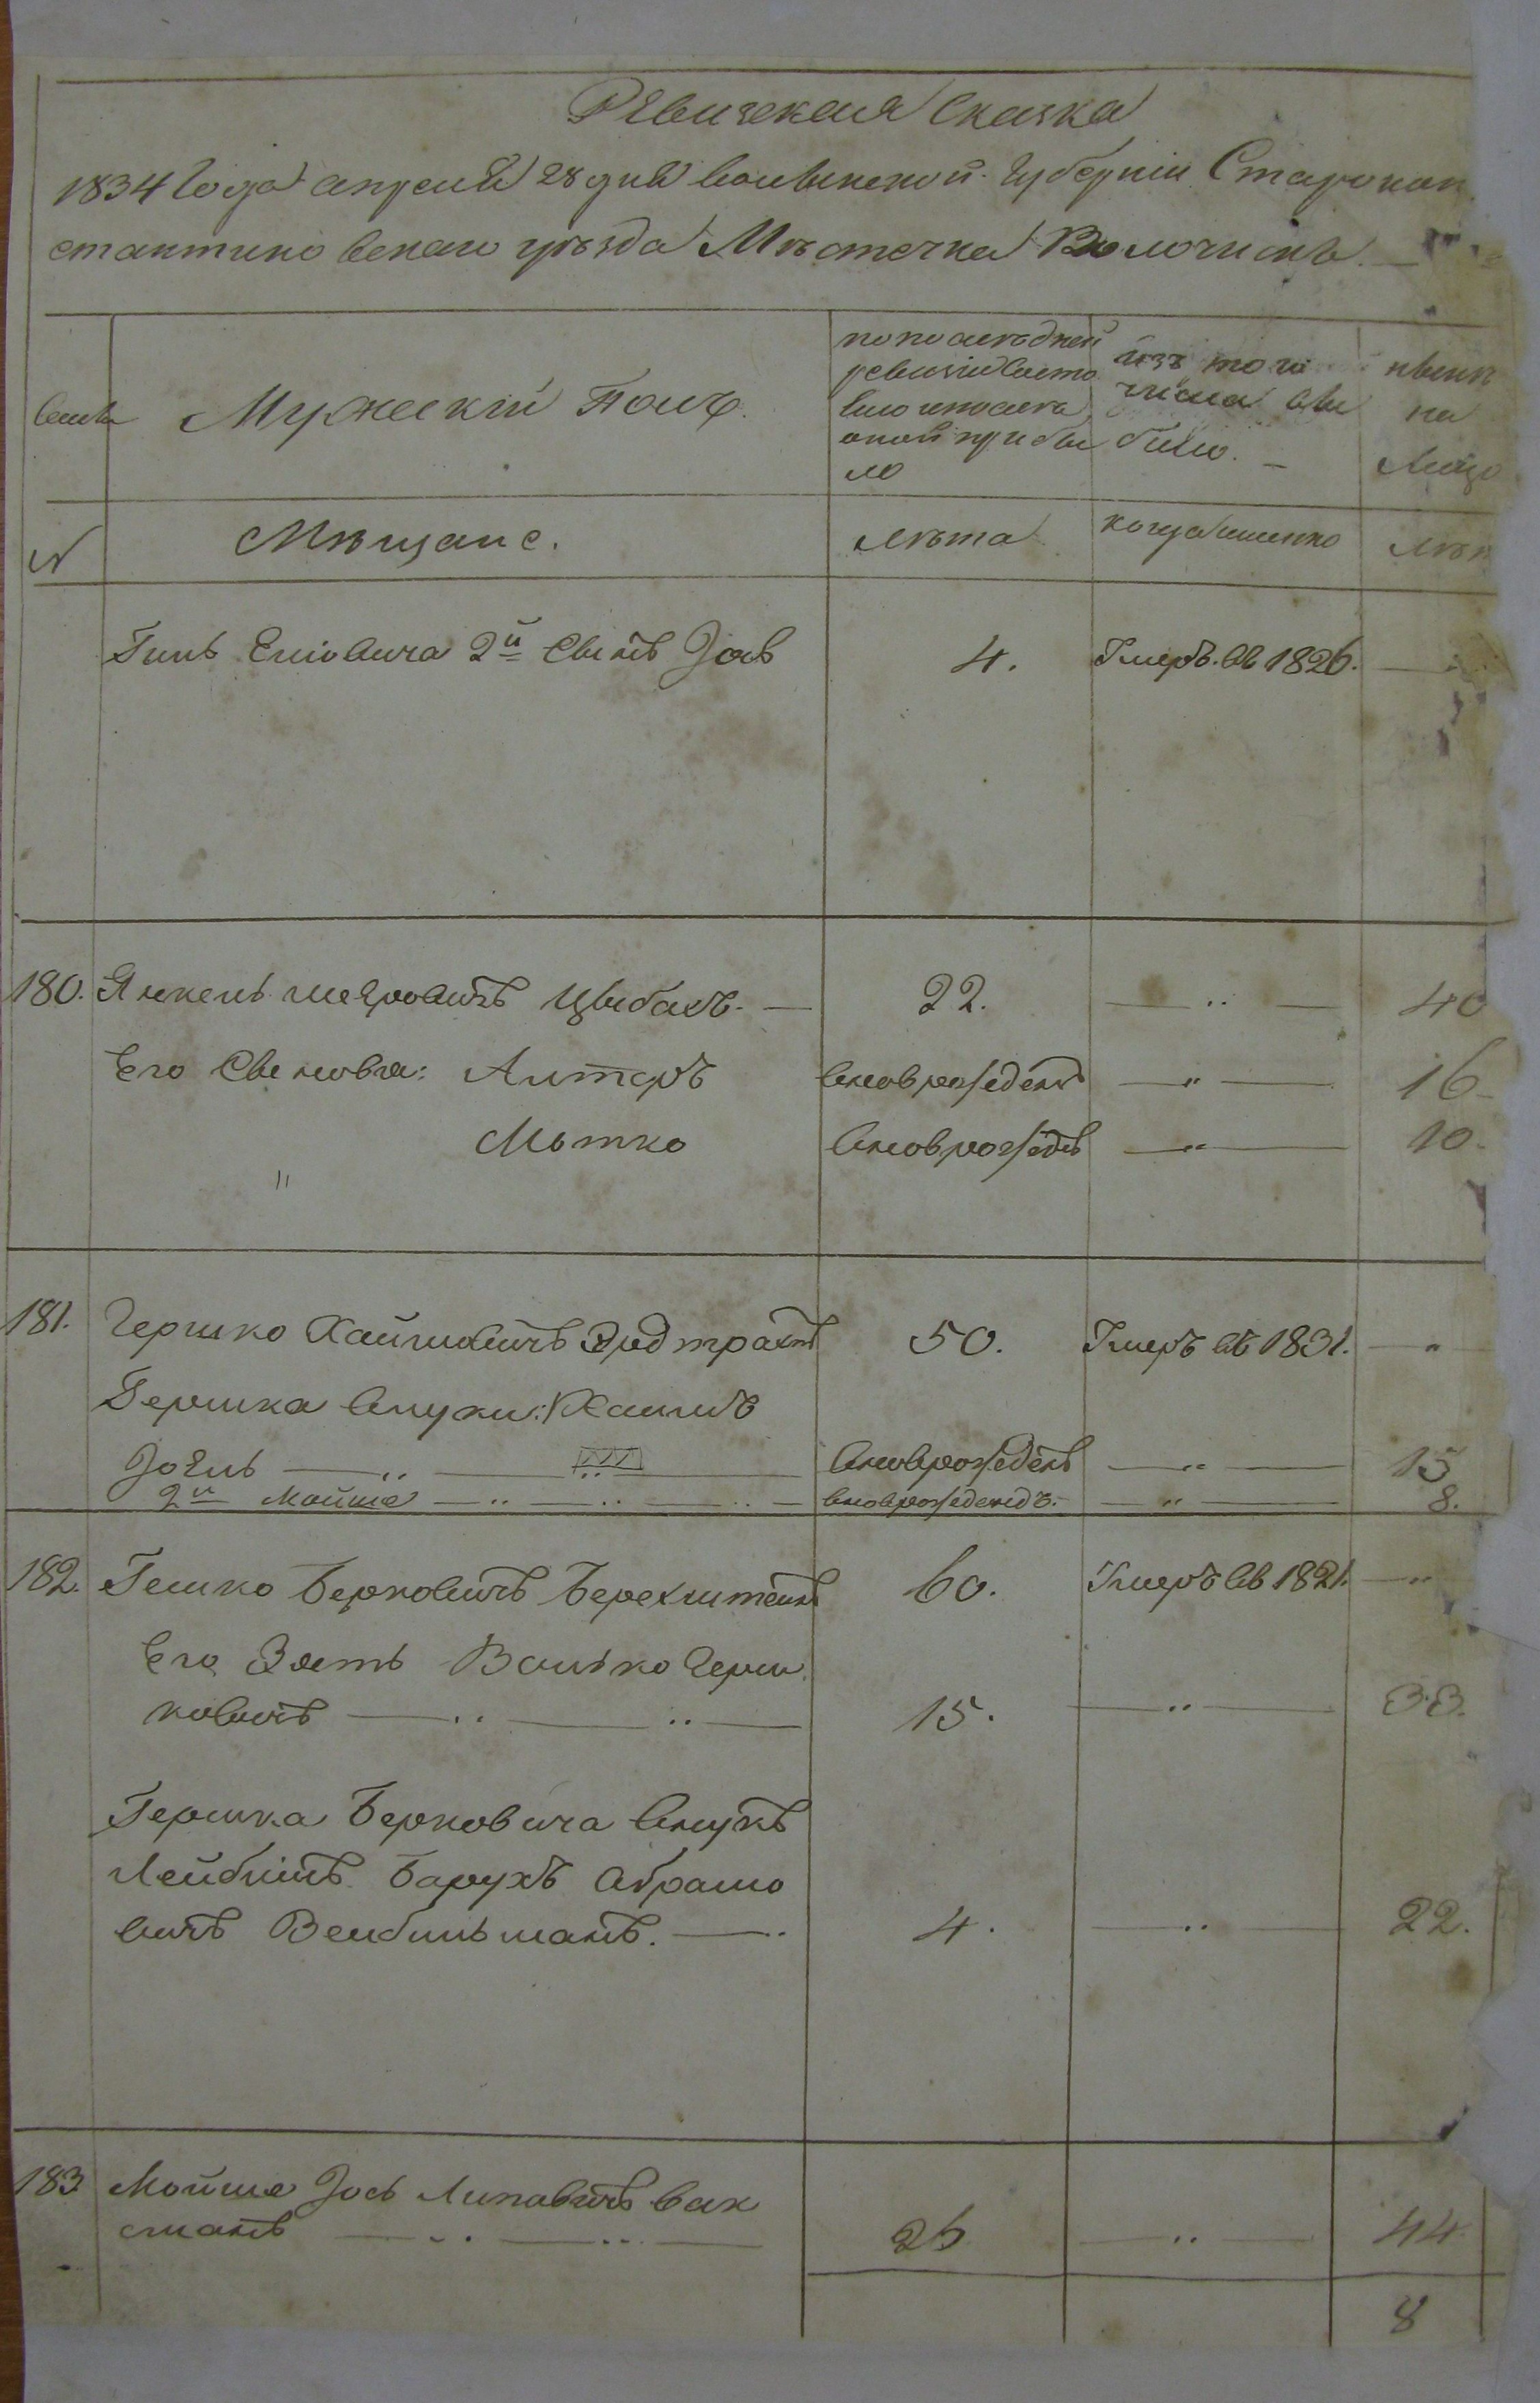 Ревизская Сказка
1834 Года апреля 28 дня Волынской Губернiи Старокон
стантиновскаго уѣзда Мѣстечка Волочискъ
семьи
Мужескiй Полъ.
по послѣдней ревизiи состояло и после оной прибыло
изъ того числа выбыло.
нынѣ на лицо
№
Мѣщане.
лѣта
когда именно
лѣт
Гиль Елiовича 2й Сынъ Iось 4. Умеръ. въ 1826. —
180. Янкель Меэровичъ Цыбахъ. — 22. — " — 40
Его Сыновья: Алтеръ вновьрожденъ — " — 16
Мотко вновьрожденъ — " — 10.
"
181. Гершко Хаимовичъ Эйдтрахтъ 50. Умеръ въ 1831. — "
Гершка внуки: Хаимъ
Iоэль — " — " — вновьрожденъ — " — 15
2й Мойше — " — " — " — вновьрожденъ. — " — 8.
182. Гешко Берковичъ Берехштейнъ 60. Умеръ въ 1821. — "
Его Зять Волько Герш
ковичъ — " — " — 15. — " — 33.
Гершка Берковича внукъ
Лейбишъ Барухъ Абрамо
вичъ Вейбильманъ. — 4. — " — 22.
183 Мойше Iось Липовичъ Вак
сманъ — " — " — 26 — " — 44.
8